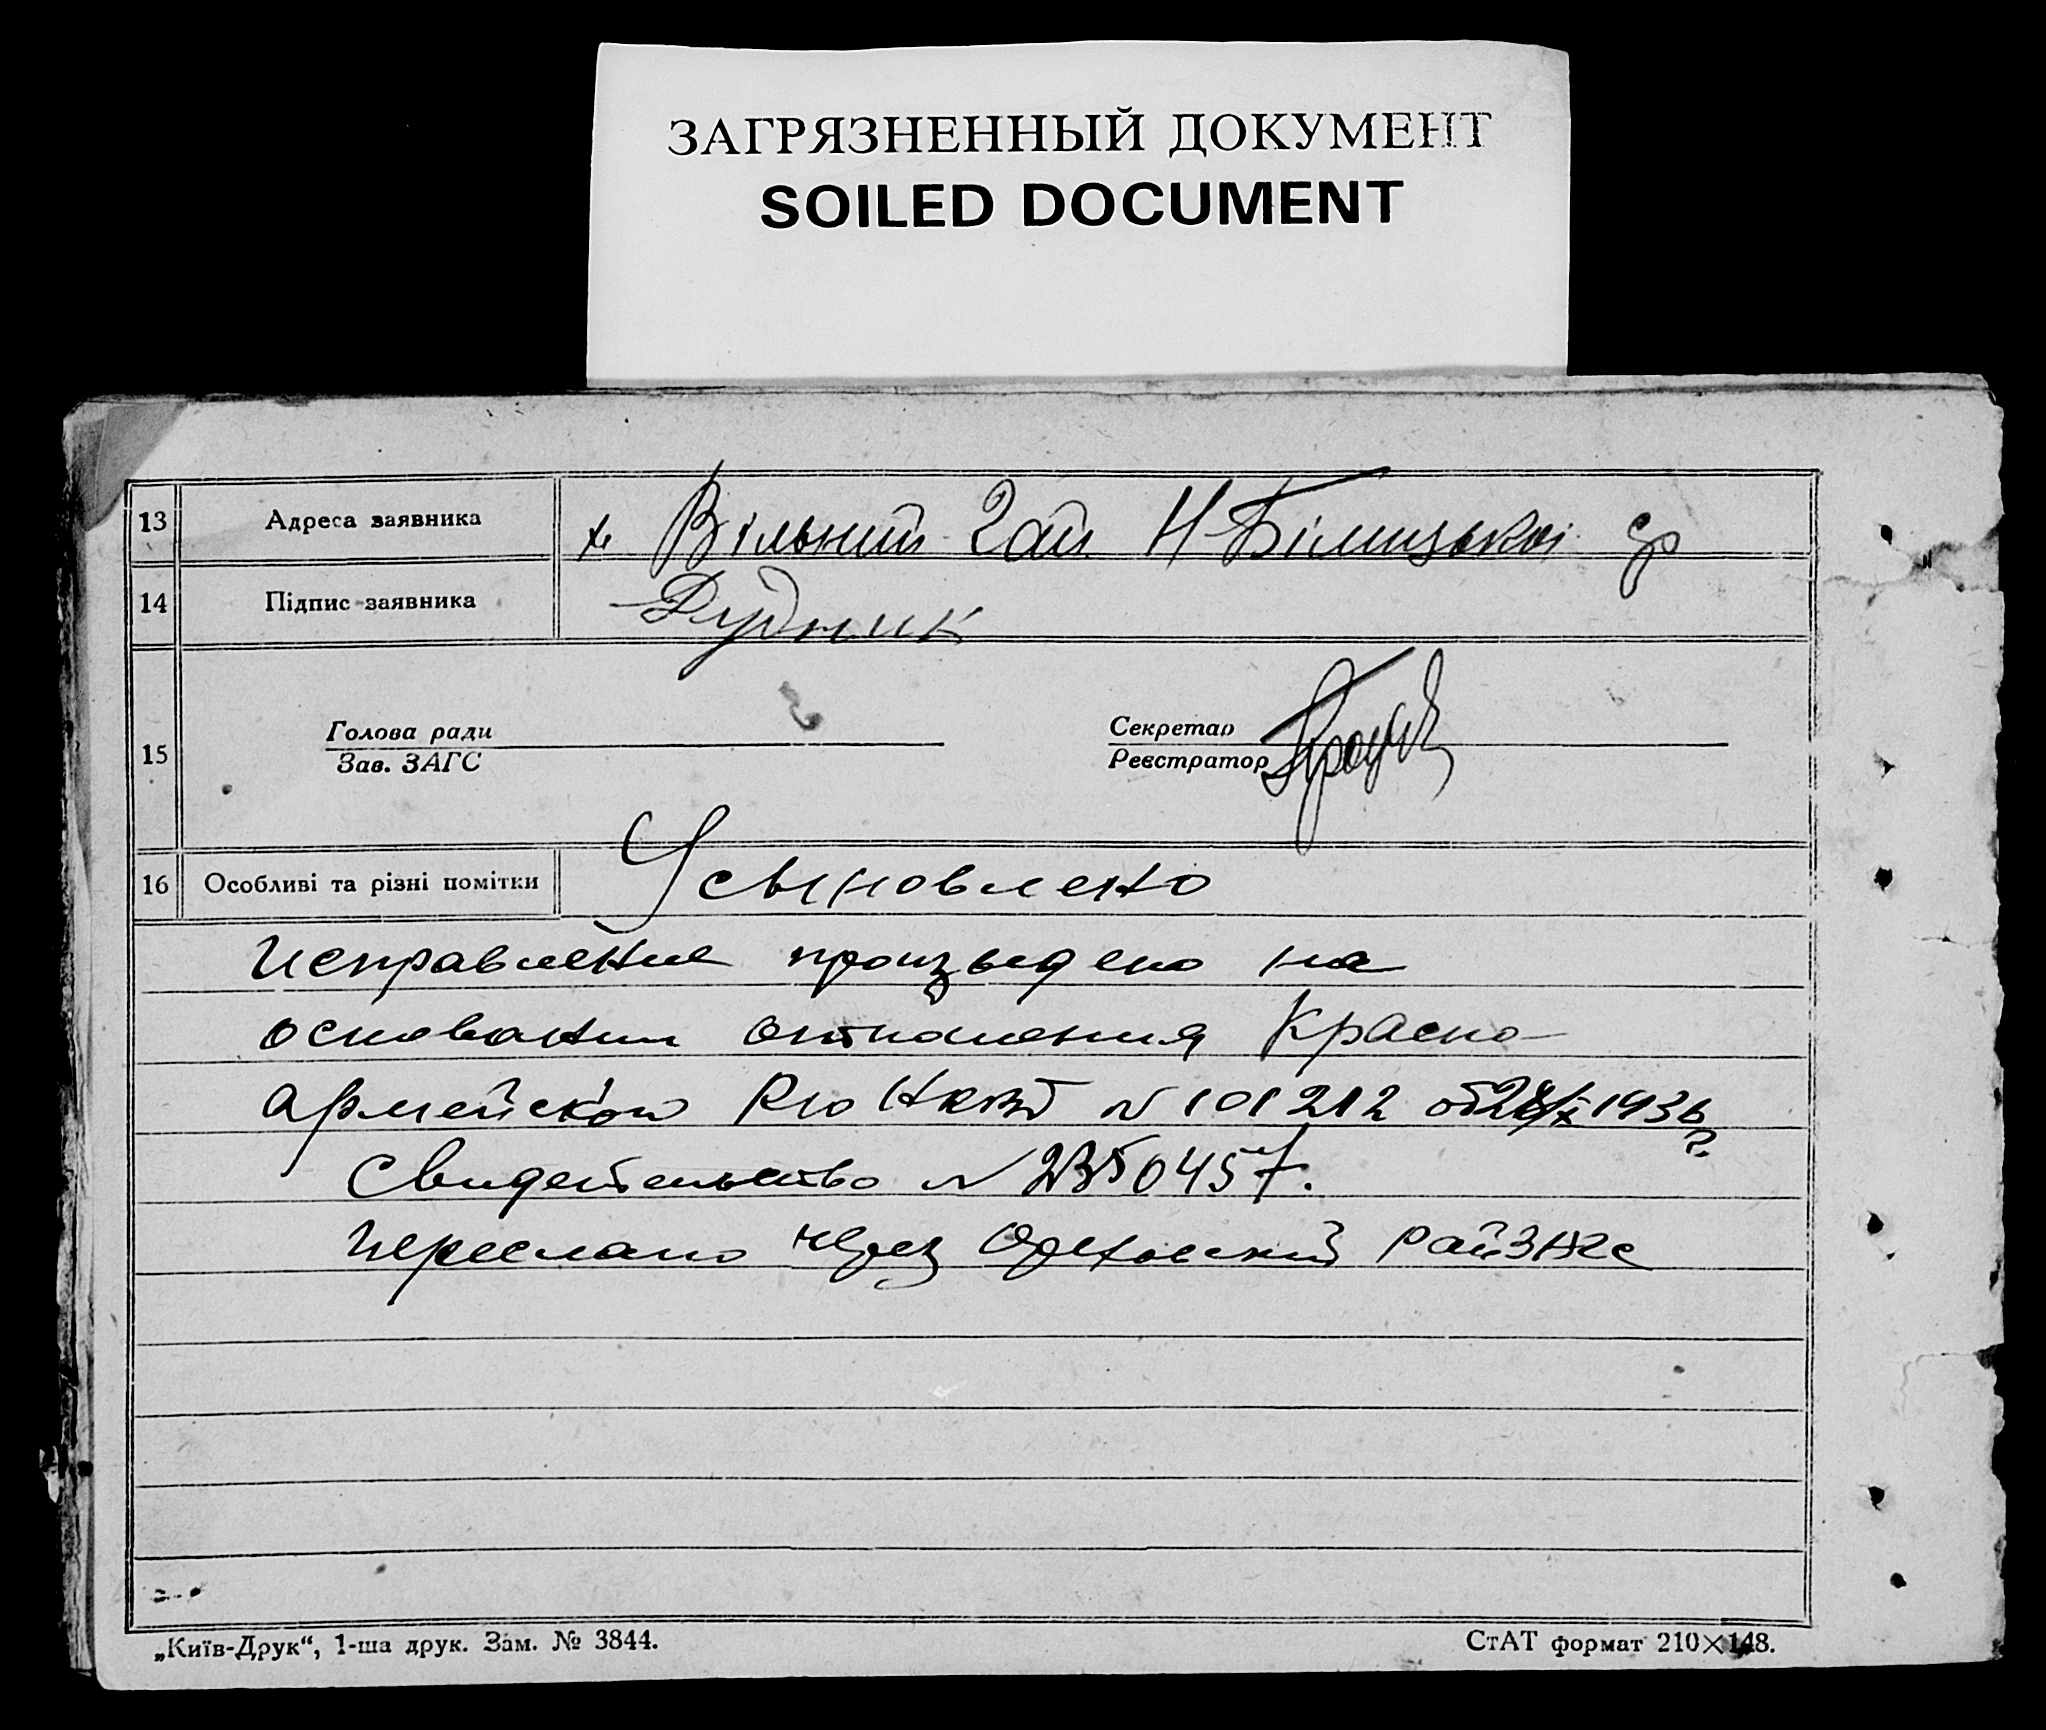 ЗАГРЯЗНЕННЫЙ ДОКУМЕНТ
SOILED DOCUMENT
13 Адреса заявника х. Вільний Гай Н-Білицької с/р
14 Підпис заявника Рудник
Голова ради
Секретар
15
Зав. ЗАГС
Реєстратор
16 Особливі та різні помітки Усыновлено
Исправление произведено на
основании отношения Красно-
армейской НКВД № 101212 1936 г.
Свидетельство № 2350457.
переслано через Ореховский РайЗАГС
„Київ-Друк“, 1-ша друк. Зам. № 3844.
СтАТ формат 210×148.